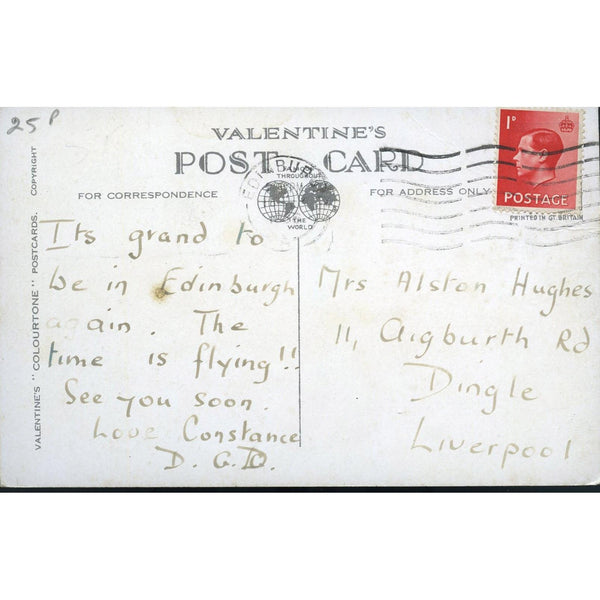 25P
VALENTINE'S
POST CARD
FOR CORRESPONDENCE
THROUGHOUT
THE
WORLD
FOR ADDRESS ONLY
1D
POSTAGE
PRINTED IN GT. BRITAIN
COPYRIGHT
VALENTINE'S "COLOURTONE" POSTCARDS.
Its grand to
be in Edinburgh
again. The
time is flying!!
See you soon.
Love Constance
D.G.D.
Mrs Alston Hughes
11, Aigburth Rd
Dingle
Liverpool